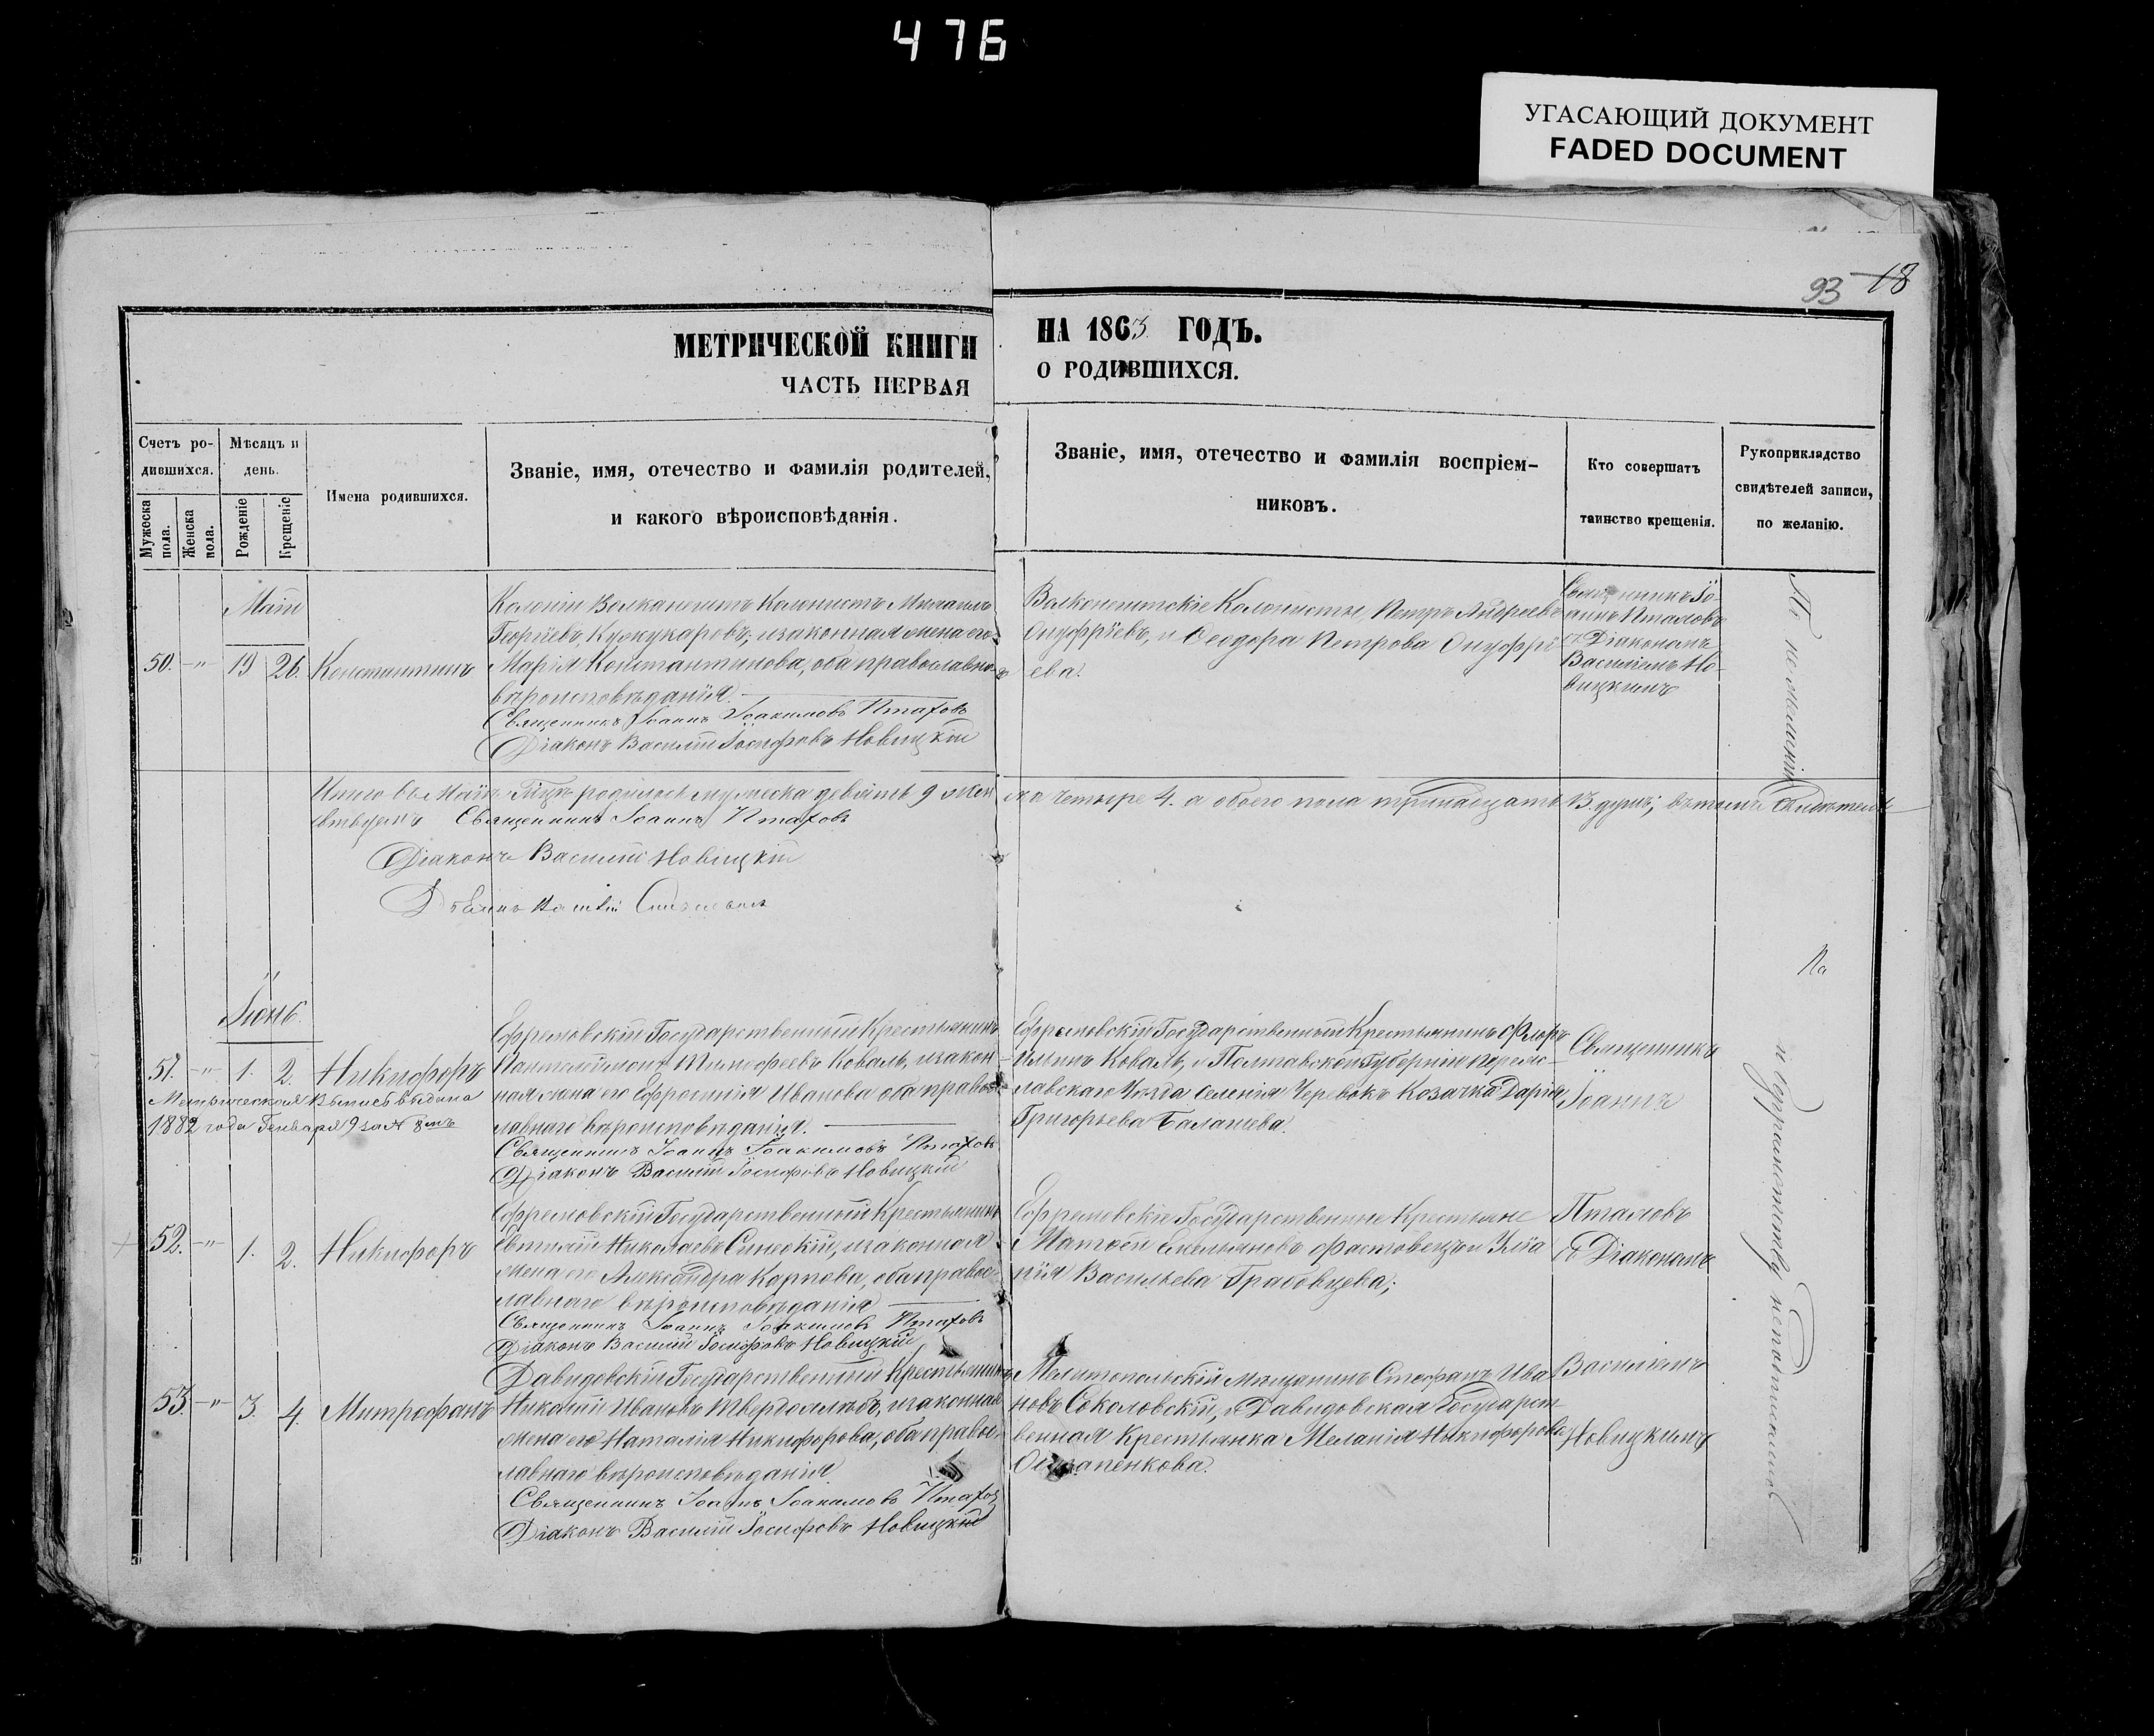 476
УГАСАЮЩИЙ ДОКУМЕНТ
FADED DOCUMENT
93 18
МЕТРИЧЕСКОЙ КНИГИ
ЧАСТЬ ПЕРВАЯ
НА 1863 ГОДЪ.
О РОДИВШИХСЯ.
Счетъ ро-
дившихся.
Мужеска
пола.
Женска
пола.
Мѣсяцъ и
день.
Рожденіе
Крещеніе
Имена родившихся.
Званіе, имя, отечество и фамилія родителей,
и какого вѣроисповѣданія.
Званіе, имя, отечество и фамилія воспріем-
никовъ.
Кто совершатъ
таинство крещенія.
Рукоприкладство
свидѣтелей записи,
по желанію.
Маій
50. -"- 19 26. Константинъ
Колоніи Волканештъ Колонистъ Михаилъ
Георгіевъ, и законная жена его
Марія Константинова, оба православнаго
вѣроисповѣданія.
Священникъ Іоаннъ Іоакимовъ Пталовъ
Діаконъ Василій Іосифовъ Новицкій
Волконештскіе Колонисты, Петръ Андреевъ
Онуфріевъ, и Ѳеодора Петрова Онуфрі-
ева.
Священникъ Іо-
аннъ Пталовъ
съ Діакономъ
Василіемъ Но-
вицкимъ
Итого въ Маіи родилось мужеска девять 9 жен
ска четыре 4. а обоего пола тринадцать 13 душъ; въ томъ свидѣтель
ствуемъ Священникъ Іоаннъ Пталовъ
Діаконъ Василій Новицкій
Іюнь.
51. -"- 1. 2. Никифоръ
Метрическая Выпись выдана
1882 года Генваря 9 за №
Ефремовскій Государственный Крестьянинъ
Пантелеймонъ Тимофеевъ Коваль, и закон
ная жена его Ефросинія Иванова оба правос-
лавнаго вѣроисповѣданія.
Священникъ Іоаннъ Іоакимовъ Пталовъ
Діаконъ Василій Іосифовъ Новицкій
Ефремовскій Государственный Крестьянинъ Флоръ
Ильинъ Коваль, и Полтавской Губерніи Переяс-
лавскаго Уѣзда селенія Черевокъ Козачка Дарія
Григорьева Балашева.
Священникъ
Іоаннъ
52. -"- 1. 2. Никифоръ
Ефремовскій Государственный Крестьянинъ
Евтихій Николаевъ Синескій, и законная
жена его Александра Карпова, оба правос-
лавнаго вѣроисповѣданія
Священникъ Іоаннъ Іоакимовъ Пталовъ
Діаконъ Василій Іосифовъ Новицкій
Ефремовскіе Государственные Крестьяне
Матѳей Емельяновъ Фастовецъ и
Васильева Грабовцева;
Пталовъ
съ Діакономъ
53. -"- 3. 4. Митрофанъ
Давидовскій Государственный Крестьянинъ
Николай Ивановъ Твердохлѣбъ, и законная
жена его Наталія Никифорова, оба правос-
лавнаго вѣроисповѣданія
Священникъ Іоаннъ Іоакимовъ Пталовъ
Діаконъ Василій Іосифовъ Новицкій
Мелитопольскій мѣщанинъ Стефанъ Ива
новъ Соколовскій, и Давидовская Государст
венная Крестьянка Меланія Никифорова
Василіемъ
Новицкимъ
По нежеланію
и неграмотству неподписались